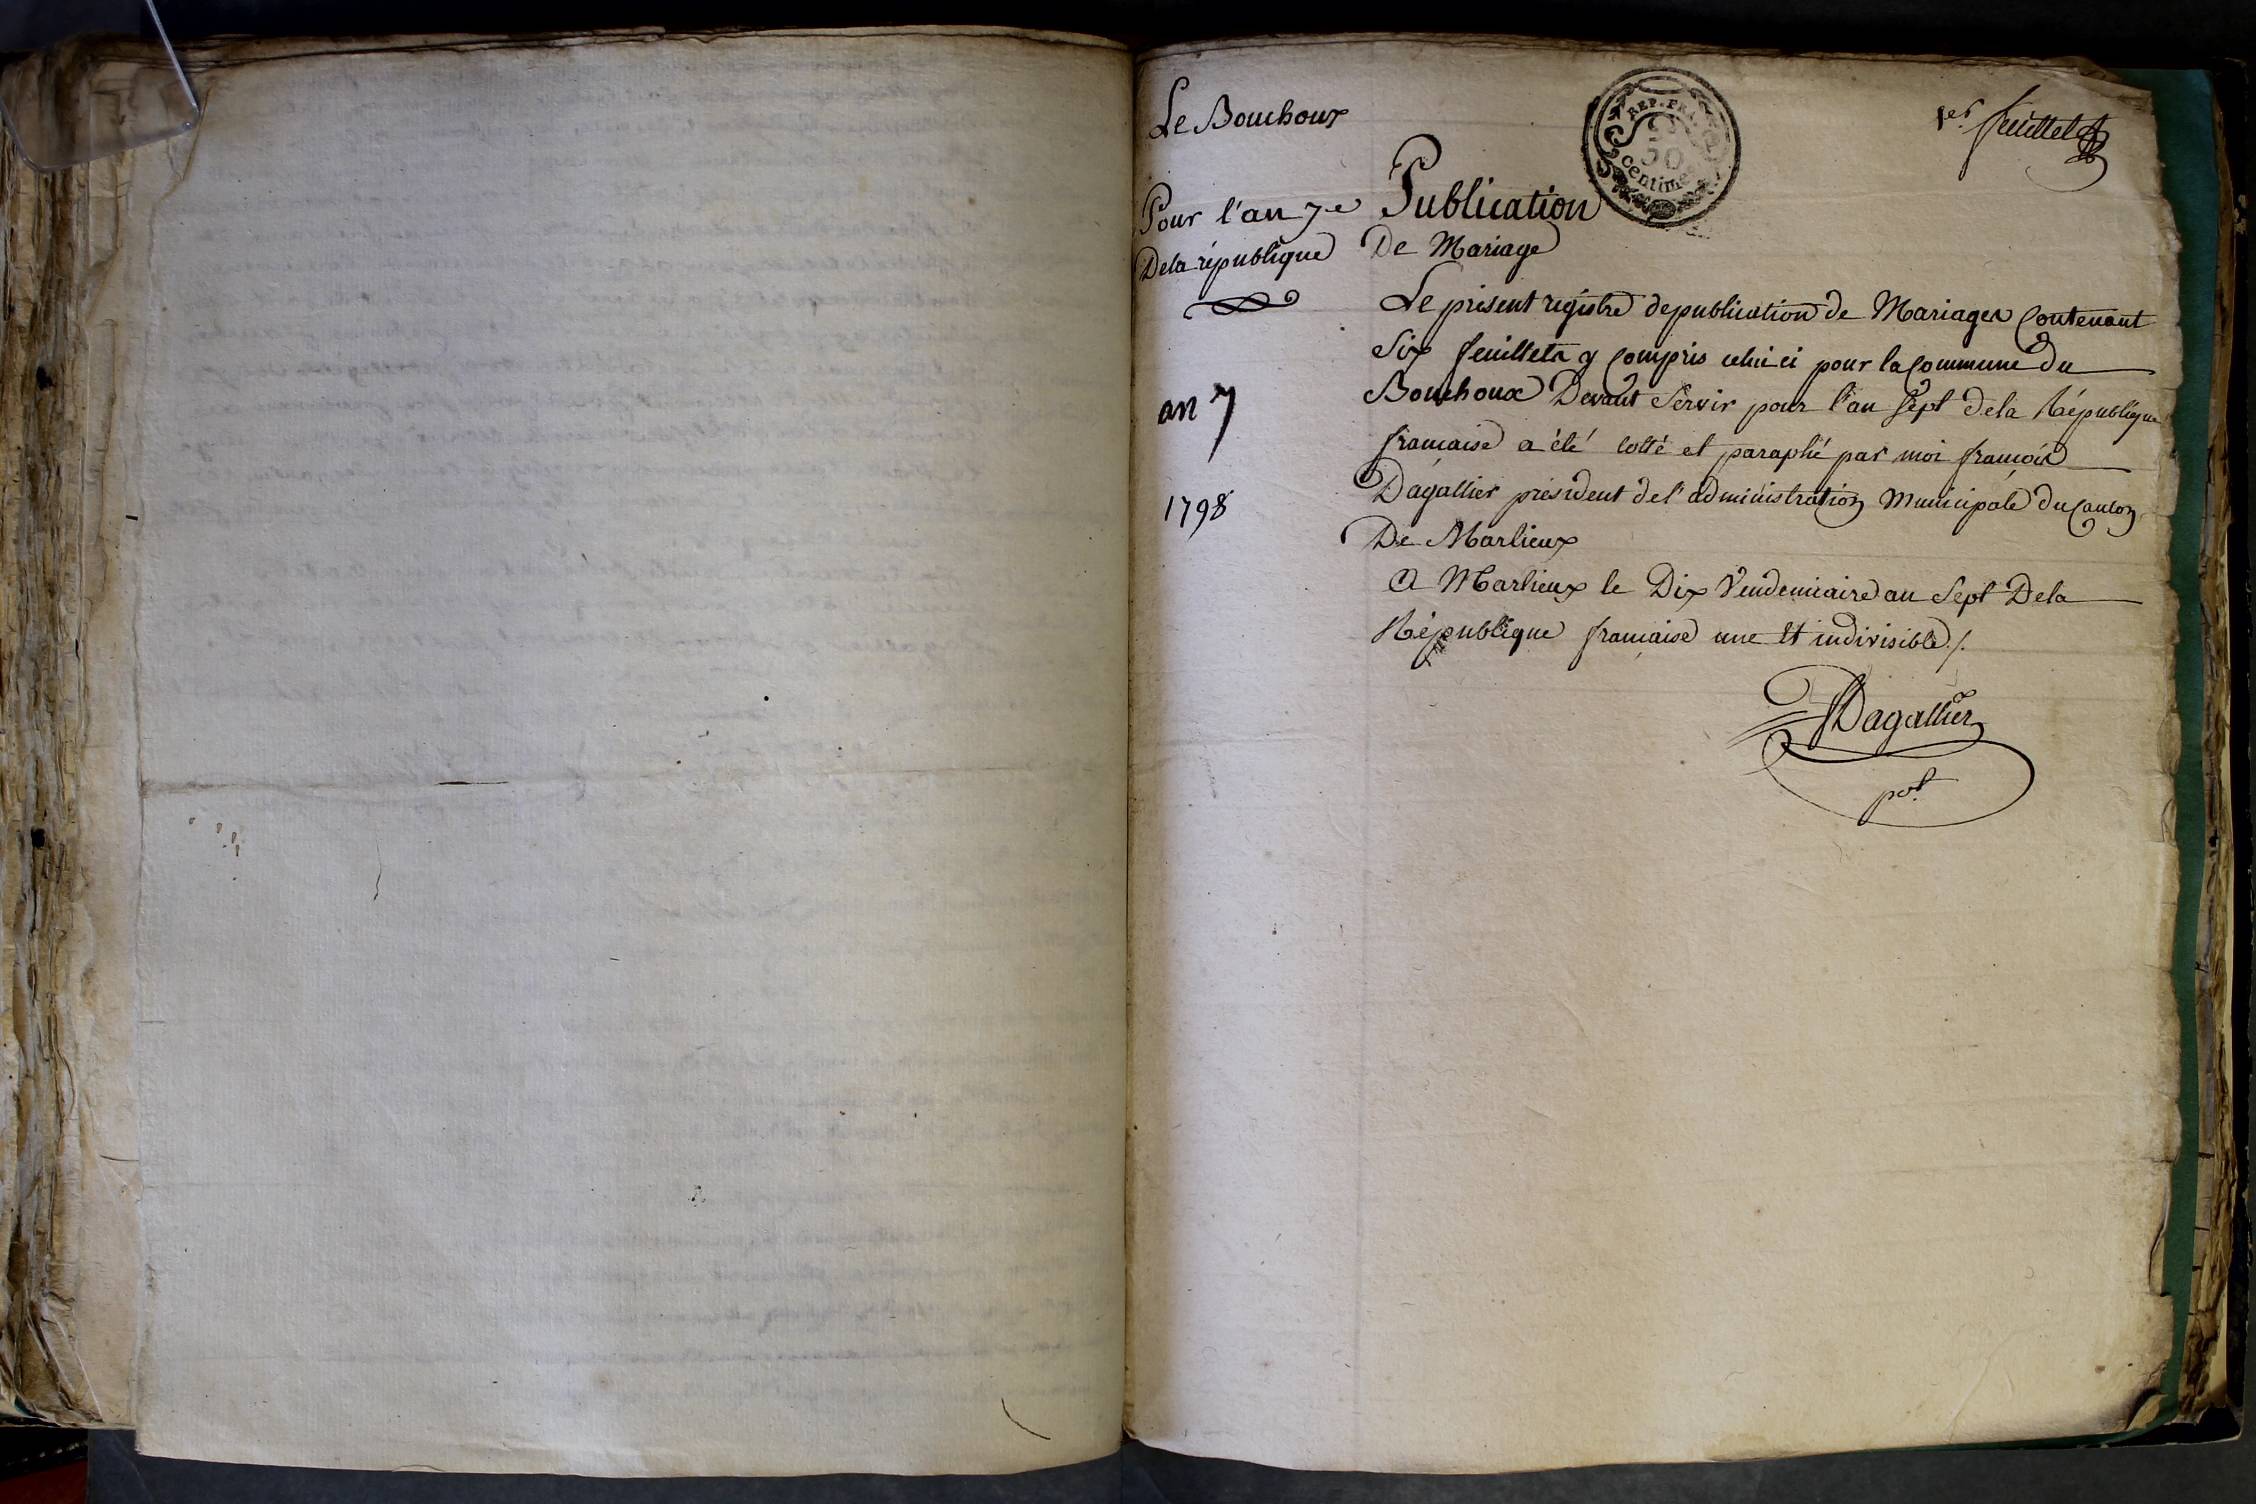 Le Bouchoux
1er feuillet
REP. FRA.
50
centimes
Pour l'an 7e
De la république
an 7
1798
Publication
De Mariage
Le présent registre de publication de Mariages Contenant
Six feuillets y Compris celui ci pour la Commune du
Bouchoux Devant Servir pour l'an Sept de la République
française a été cotté et paraphé par moi françois
Dagallier président de l'administration Municipale du Canton
De Marlieux
A Marlieux le Dix Vendemiaire an Sept De la
République française une et indivisible ./.
Dagallier
pdt